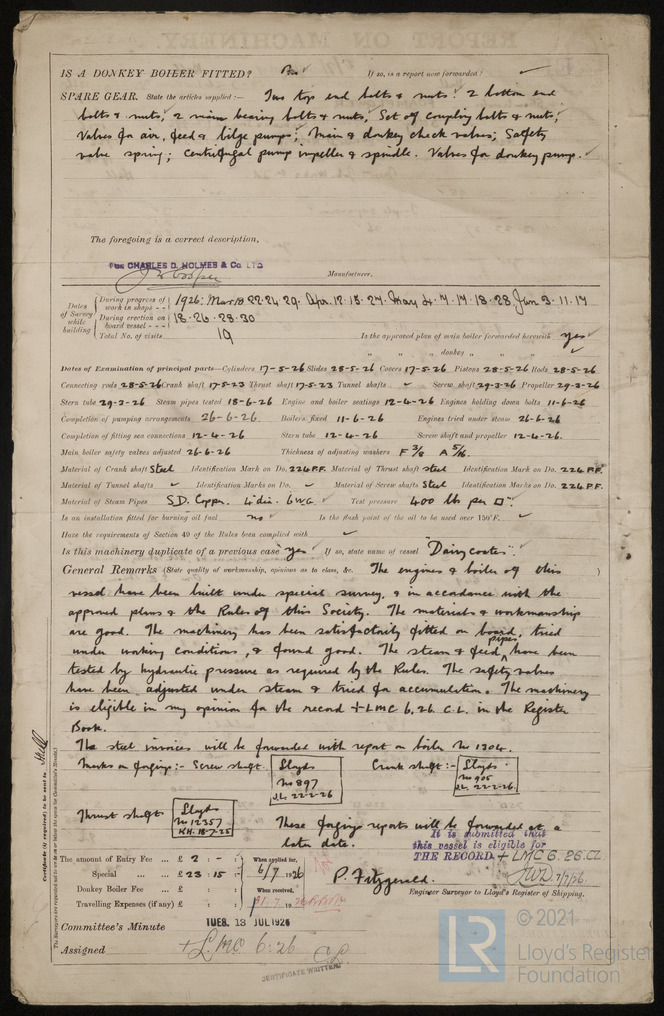 IS A DONKEY BOILER FITTED? No If so, is a report now forwarded? ✓
SPARE GEAR. State the articles supplied:— Two top end bolts & nuts; 2 bottom end
bolts & nuts; 2 main bearing bolts & nuts; Set of coupling bolts & nuts;
Valves for air, feed & bilge pumps; Main & donkey check valves; Safety
valve spring; Centrifugal pump impeller & spindle. Valves for donkey pump.
The foregoing is a correct description,
FOR CHARLES D. HOLMES & Co. LTD
Manufacturer.
Dates of Survey while building
During progress of work in shops - - 1926: Mar. 18. 22. 24. 29. Apr. 12. 15. 27. May 4. 7. 14. 18. 28. Jun 3. 11. 17
During erection on board vessel - - - 18. 26. 28. 30
Total No. of visits 19 Is the approved plan of main boiler forwarded herewith yes
" " " donkey " " " ✓
Dates of Examination of principal parts—Cylinders 17-5-26 Slides 28-5-26 Covers 17-5-26 Pistons 28-5-26 Rods 28-5-26
Connecting rods 28-5-26 Crank shaft 17-5-23 Thrust shaft 17-5-23 Tunnel shafts ✓ Screw shaft 29-3-26 Propeller 29-3-26
Stern tube 29-3-26 Steam pipes tested 18-6-26 Engine and boiler seatings 12-4-26 Engines holding down bolts 11-6-26
Completion of pumping arrangements 26-6-26 Boilers fixed 11-6-26 Engines tried under steam 26-6-26
Completion of fitting sea connections 12-4-26 Stern tube 12-4-26 Screw shaft and propeller 12-4-26.
Main boiler safety valves adjusted 26-6-26 Thickness of adjusting washers F 3/8 A 5/16.
Material of Crank shaft Steel Identification Mark on Do. 224 P.F. Material of Thrust shaft steel Identification Mark on Do. 224 P.F.
Material of Tunnel shafts ✓ Identification Marks on Do. ✓ Material of Screw shafts Steel Identification Marks on Do. 224 P.F.
Material of Steam Pipes S.D. Copper. 4" dia. 6 W.G. ✓ Test pressure 400 lbs per □"
Is an installation fitted for burning oil fuel no ✓ Is the flash point of the oil to be used over 150°F. ✓
Have the requirements of Section 49 of the Rules been complied with ✓
Is this machinery duplicate of a previous case yes If so, state name of vessel "Dairycoates".
General Remarks (State quality of workmanship, opinions as to class, &c. The engines & boiler of this )
vessel have been built under special survey, & in accordance with the
approved plans & the Rules of this Society. The materials & workmanship
are good. The machinery has been satisfactorily fitted on board, tried
under working conditions, & found good. The steam & feed pipes have been
tested by hydraulic pressure as required by the Rules. The safety valves
have been adjusted under steam & tried for accumulation. The machinery
is eligible in my opinion for the record +LMC 6.26. C.L. in the Register
Book.
The steel invoices will be forwarded with report on boiler No 1304.
Marks on forgings:- Screw shaft. Lloyds No 897 J.L. 22-2-26 Crank shaft:- Lloyds No 905 J.L. 22-2-26.
Thrust shaft Lloyds No 12357 K.H. 18-7-25
These forgings reports will be forwarded at a
later date.
It is submitted that
this vessel is eligible for
THE RECORD + LMC 6.26. CL
7/7/26.
The amount of Entry Fee ... £ 2 : - : When applied for,
Special ... ... £ 23 : 15 : 6/7 1926
Donkey Boiler Fee ... £ : : When received,
Travelling Expenses (if any) £ : :
P. Fitzgerald.
Engineer Surveyor to Lloyd's Register of Shipping.
Committee's Minute TUES. 13 JUL 1926
Assigned + L.M.C. 6.26 C.L.
CERTIFICATE WRITTEN
Certificate (if required) to be sent to Hull
© 2021
Lloyd's Register
Foundation
LR